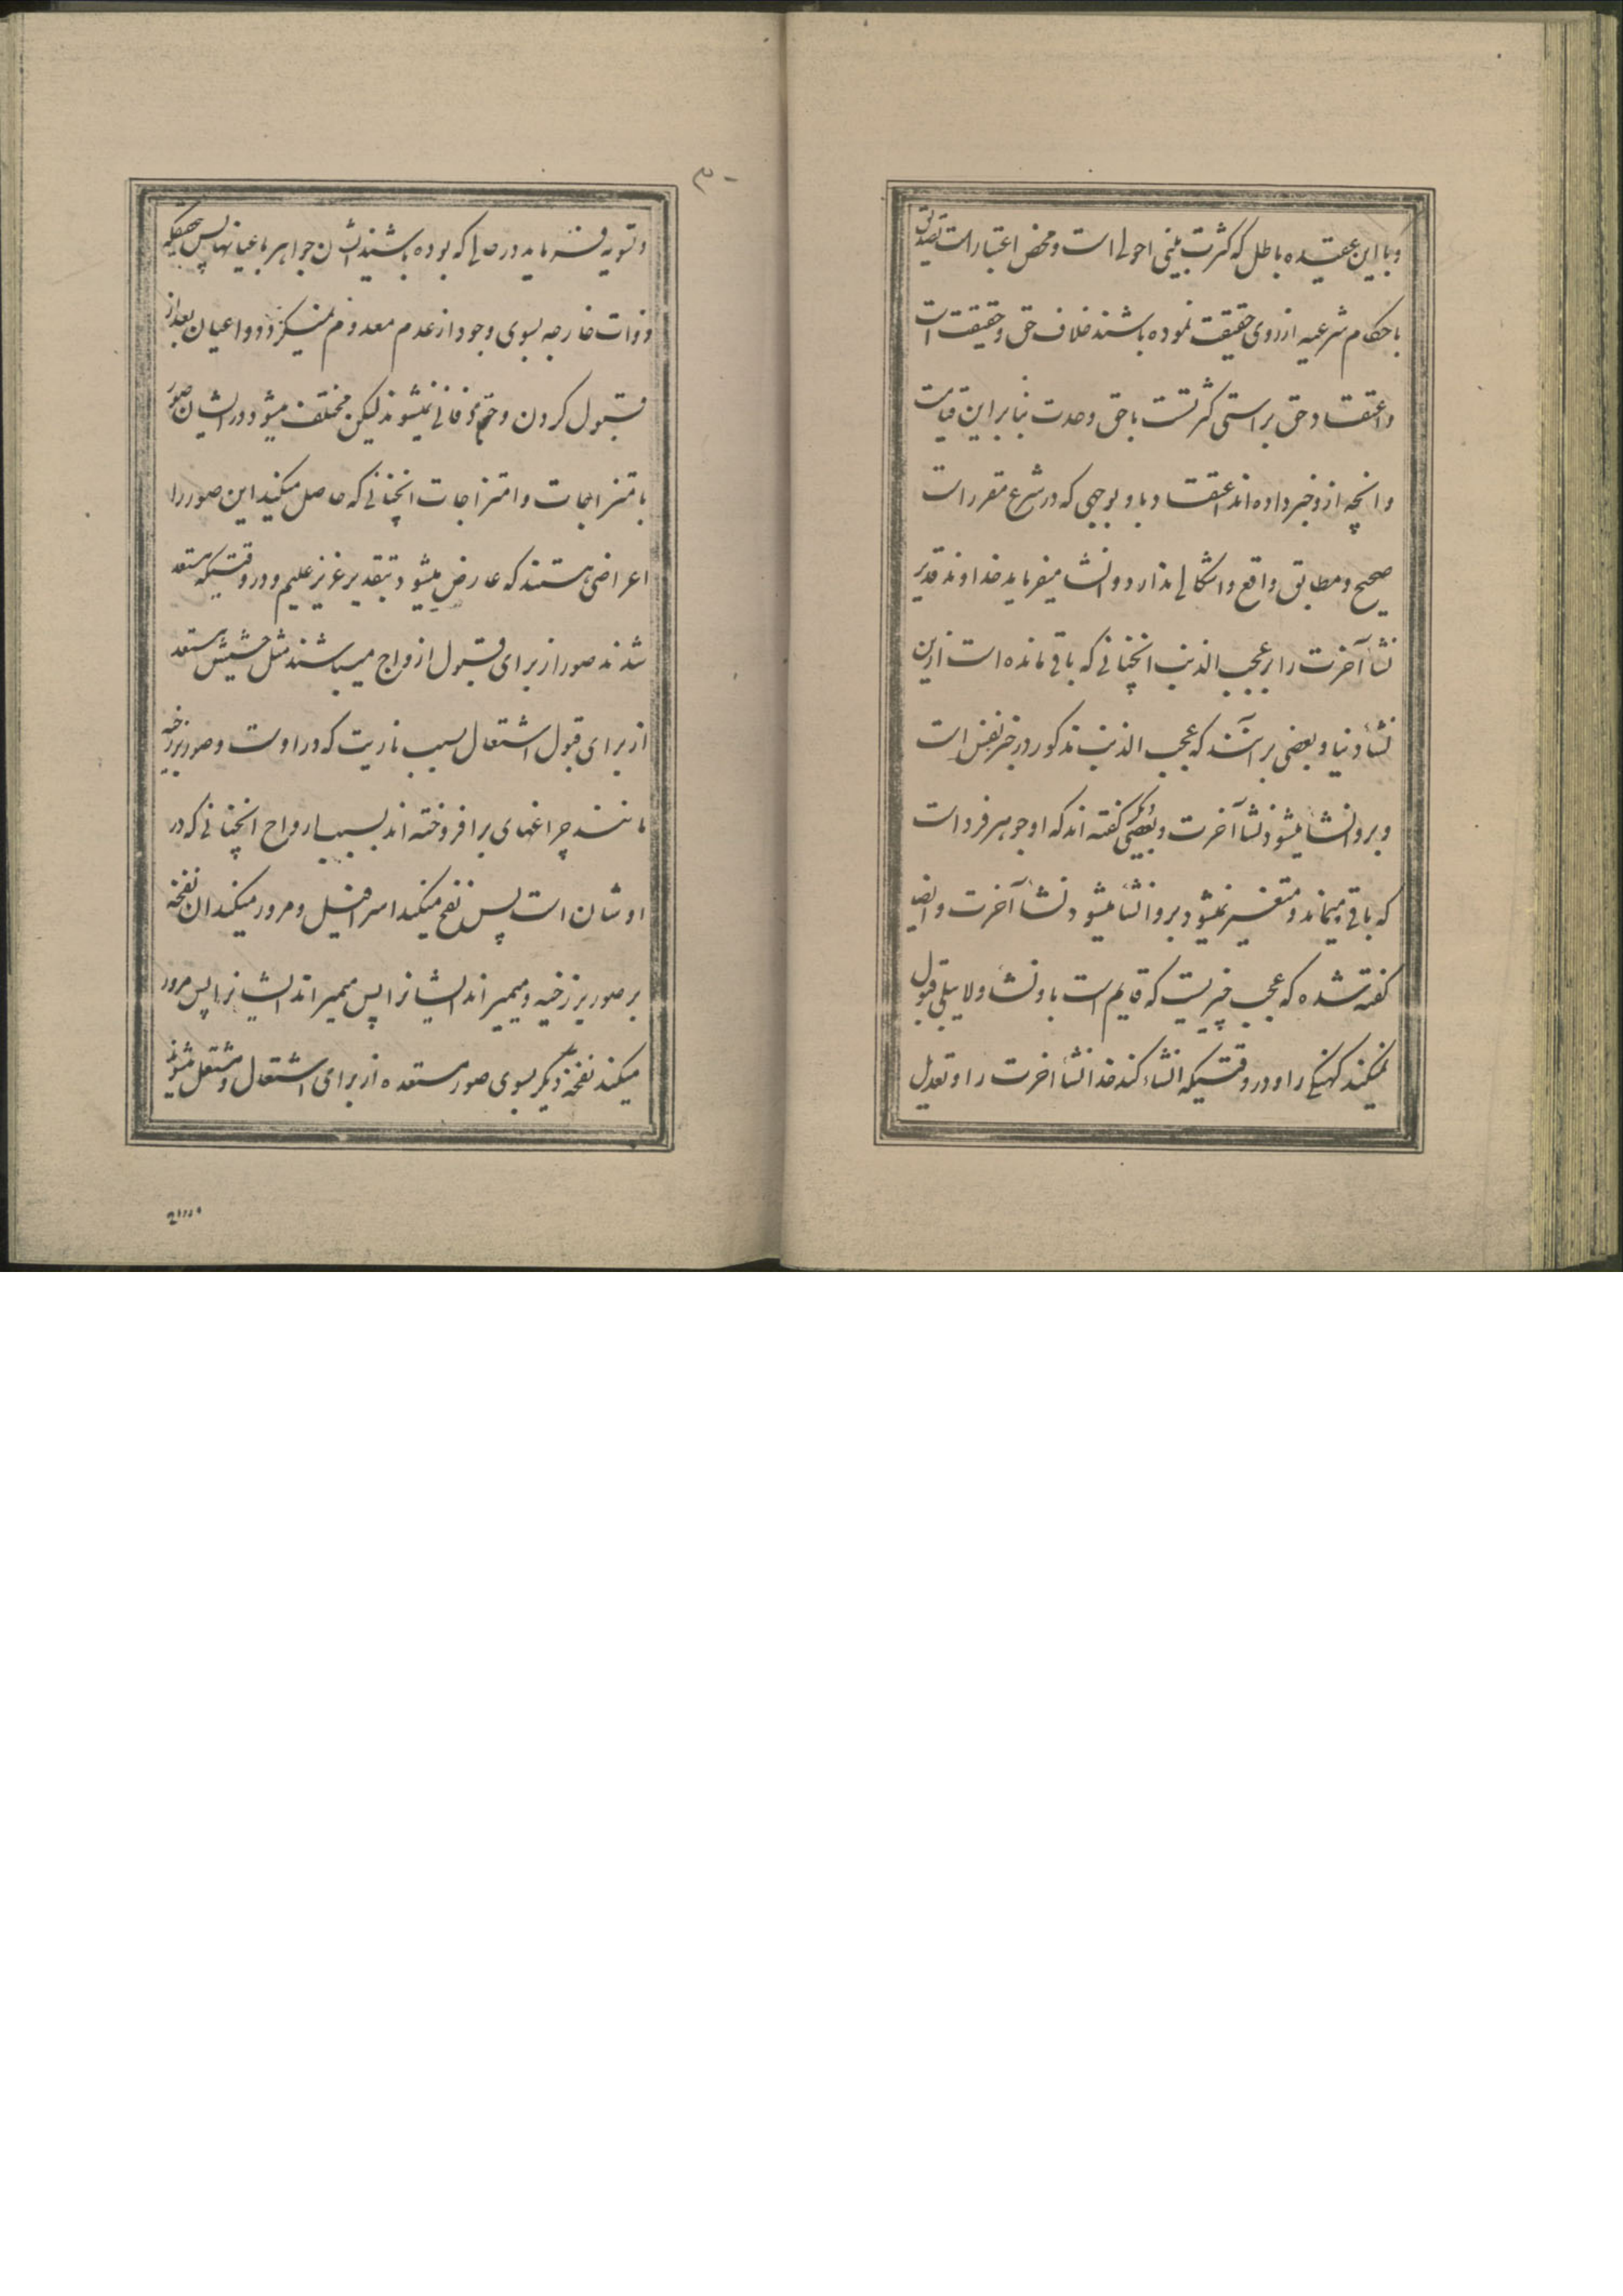 و با این عقیده باطل که کثرت بینی احولی است و محض اعتبار است تصدیق
باحکام شرعیه از روی حقیقت نموده باشند خلاف حق و حقیقت است
و اعتقاد حق براستی کثرتست با حق وحدت بنابراین قیامت
و انچه ازو خبر داده‌اند اعتقاد باو بوجهی که در شرع مقرر است
صحیح و مطابق واقع و اشکالی ندارد و انشا میفرماید خداوند قدیر
نشأ آخرت را بر عجب الذنب انچنانی که باقی مانده است ازین
نشأ دنیا و بعضی برآنند که عجب الذنب مذکور در خبر نفس است
و برو انشا میشود نشأ آخرت و بعضی دیگر گفته‌اند که او جوهر فرد است
که باقی میماند و متغیر نمیشود برو انشا میشود نشأ آخرت و ایضا
گفته شده که عجب چیزیست که قایم است باو نشأ و لا یبلی قبول
نمیکند کهنگی را و در وقتیکه انشاء کند خدا نشأ اخرت را و تعدیل
۳۰
و تسویه فرماید در حالی که بوده باشند ایشان جواهر باعیانها پس بحقیقیکه
ذوات خارجه بسوی وجود از عدم معدوم نمیگردد و اعیان بعد از
قبول کردن وجود فانی نمیشوند لیکن مختلف میشود در ایشان صور
بامتزاجات و امتزاجات انچنانی که حاصل میکند این صور را
اعراضی هستند که عارض میشود بتقدیر عزیز علیم و در وقتیکه مستعد
شدند صور از برای قبول ارواح میباشند مثل حشیش مستعد
از برای قبول اشتعال بسبب ناریت که در اوست و صور برزخیه
مانند چراغهای برافروخته‌اند بسبب ارواح انچنانی که در
اوشان است پس نفخ میکند اسرافیل و مرور میکند ان نفخه
بر صور برزخیه و میمیراند ایشانرا پس میمیراند ایشانرا پس مرور
میکند نفخه دیگر بسوی صور مستعده از برای اشتعال و مشتعل میشوند